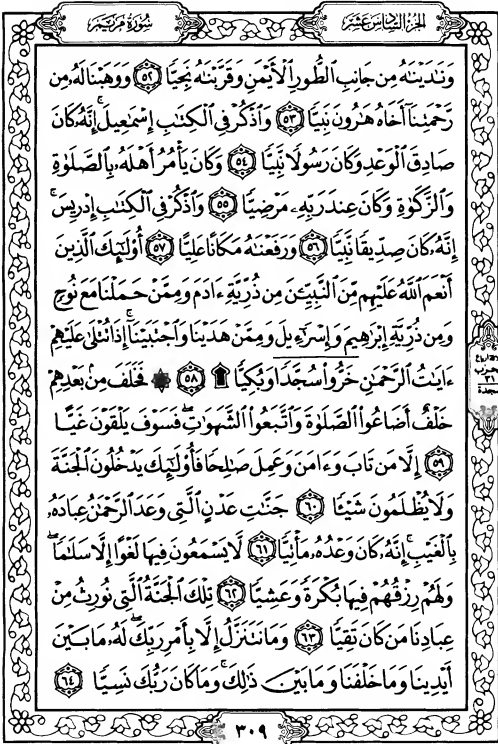 الجزء السادس عشر
سورة مريم
وَنَٰدَيْنَٰهُ مِن جَانِبِ ٱلطُّورِ ٱلْأَيْمَنِ وَقَرَّبْنَٰهُ نَجِيًّا ٥٢ وَوَهَبْنَا لَهُۥ مِن
رَّحْمَتِنَآ أَخَاهُ هَٰرُونَ نَبِيًّا ٥٣ وَٱذْكُرْ فِي ٱلْكِتَٰبِ إِسْمَٰعِيلَ ۚ إِنَّهُۥ كَانَ
صَادِقَ ٱلْوَعْدِ وَكَانَ رَسُولًا نَّبِيًّا ٥٤ وَكَانَ يَأْمُرُ أَهْلَهُۥ بِٱلصَّلَوٰةِ
وَٱلزَّكَوٰةِ وَكَانَ عِندَ رَبِّهِۦ مَرْضِيًّا ٥٥ وَٱذْكُرْ فِي ٱلْكِتَٰبِ إِدْرِيسَ ۚ
إِنَّهُۥ كَانَ صِدِّيقًا نَّبِيًّا ٥٦ وَرَفَعْنَٰهُ مَكَانًا عَلِيًّا ٥٧ أُو۟لَٰٓئِكَ ٱلَّذِينَ
أَنْعَمَ ٱللَّهُ عَلَيْهِم مِّنَ ٱلنَّبِيِّـۧنَ مِن ذُرِّيَّةِ ءَادَمَ وَمِمَّنْ حَمَلْنَا مَعَ نُوحٍ
وَمِن ذُرِّيَّةِ إِبْرَٰهِيمَ وَإِسْرَٰٓءِيلَ وَمِمَّنْ هَدَيْنَا وَٱجْتَبَيْنَآ ۚ إِذَا تُتْلَىٰ عَلَيْهِمْ
ءَايَٰتُ ٱلرَّحْمَٰنِ خَرُّوا۟ سُجَّدًا وَبُكِيًّا ۩ ٥٨ ۞ فَخَلَفَ مِنۢ بَعْدِهِمْ
خَلْفٌ أَضَاعُوا۟ ٱلصَّلَوٰةَ وَٱتَّبَعُوا۟ ٱلشَّهَوَٰتِ ۖ فَسَوْفَ يَلْقَوْنَ غَيًّا
٥٩ إِلَّا مَن تَابَ وَءَامَنَ وَعَمِلَ صَٰلِحًا فَأُو۟لَٰٓئِكَ يَدْخُلُونَ ٱلْجَنَّةَ
وَلَا يُظْلَمُونَ شَيْـًٔا ٦٠ جَنَّٰتِ عَدْنٍ ٱلَّتِي وَعَدَ ٱلرَّحْمَٰنُ عِبَادَهُۥ
بِٱلْغَيْبِ ۚ إِنَّهُۥ كَانَ وَعْدُهُۥ مَأْتِيًّا ٦١ لَّا يَسْمَعُونَ فِيهَا لَغْوًا إِلَّا سَلَٰمًا ۖ
وَلَهُمْ رِزْقُهُمْ فِيهَا بُكْرَةً وَعَشِيًّا ٦٢ تِلْكَ ٱلْجَنَّةُ ٱلَّتِي نُورِثُ مِنْ
عِبَادِنَا مَن كَانَ تَقِيًّا ٦٣ وَمَا نَتَنَزَّلُ إِلَّا بِأَمْرِ رَبِّكَ ۖ لَهُۥ مَا بَيْنَ
أَيْدِينَا وَمَا خَلْفَنَا وَمَا بَيْنَ ذَٰلِكَ ۚ وَمَا كَانَ رَبُّكَ نَسِيًّا ٦٤
الحزب
٣١
سجدة
٣٠٩